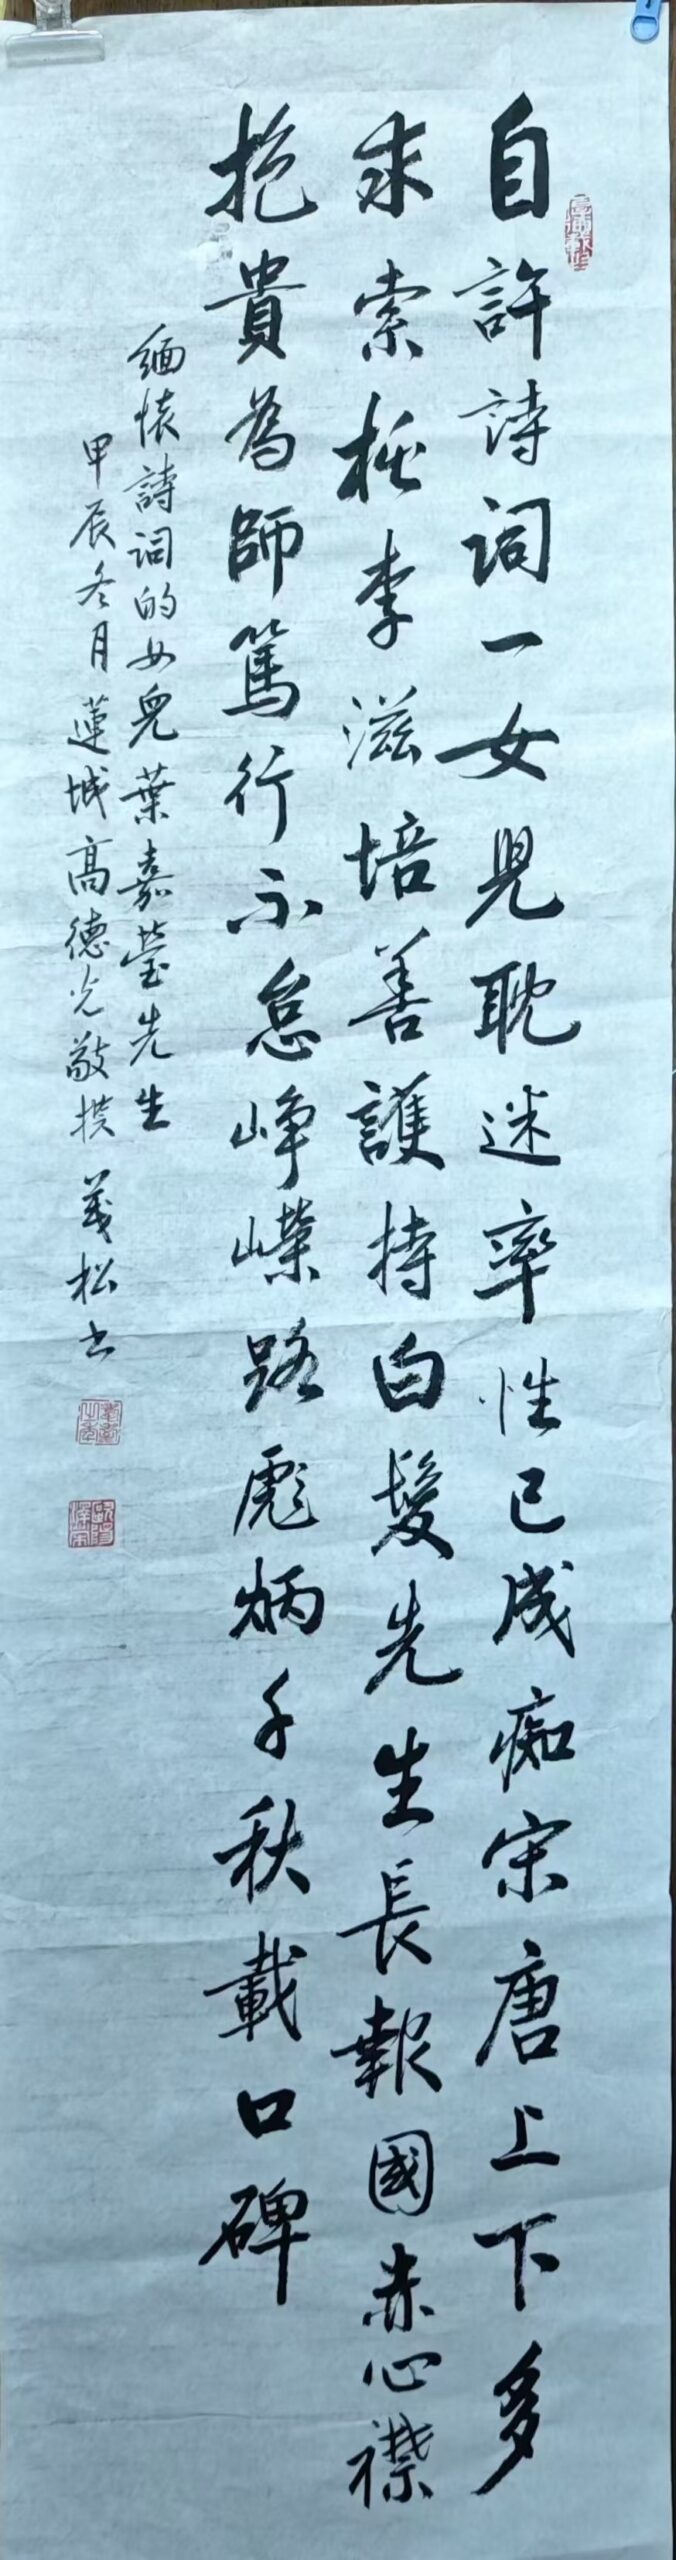 自許詩詞一女兒耽迷率性已成痴宋唐上下多
求索桃李滋培善護持白髮先生長報國赤心襟
抱貴為師篤行不怠崢嶸路彪炳千秋載口碑
緬懷詩詞的女兒葉嘉瑩先生
甲辰冬月蓮城高德光敬撰義松書